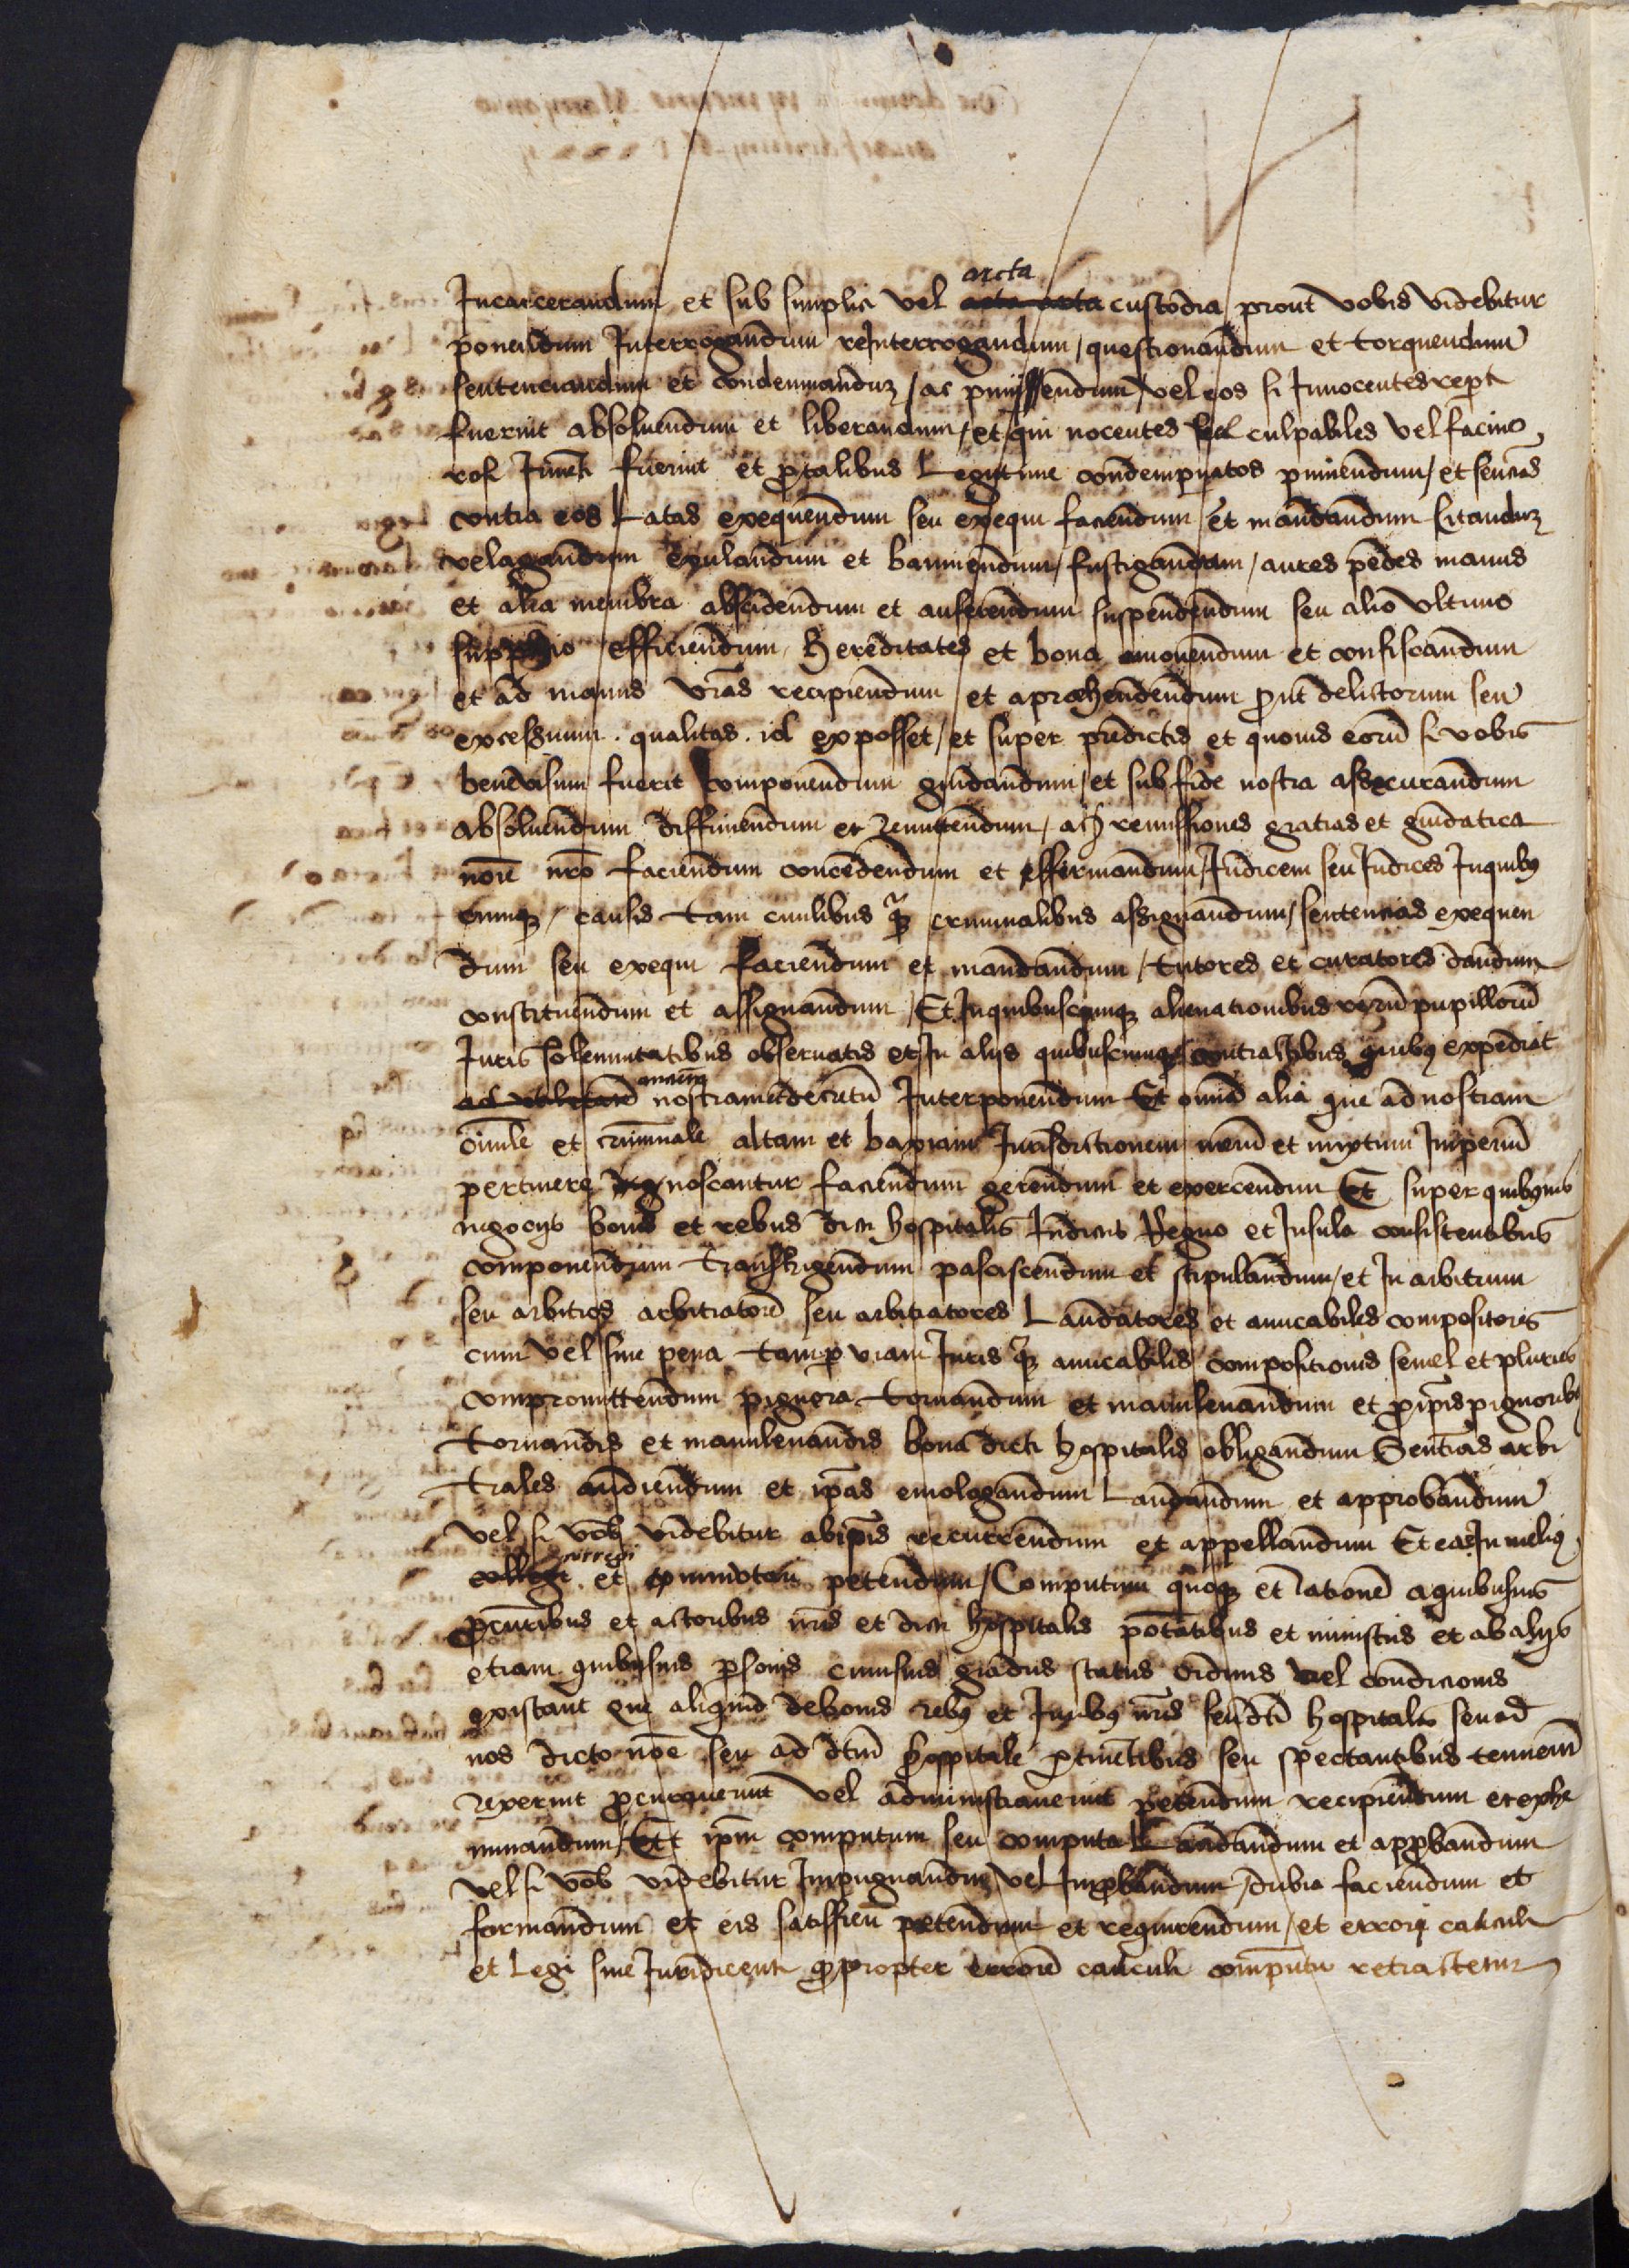 arcta
Incarcerandum et sub simplici vel custodia prout vobis videbitur
ponendum Interrogandum reInterrogandum / questionandum et torquendum
sentenciandum et condemnanduz / ac / vel eos si Innocentes rept
fuerint absoluendum et liberandum / et qui nocentes vel culpabiles vel facino
rosi fuerint et ptalibus Legitime condempnatos puniendum / et sencias
contra eos Latas exequendum seu exequi faciendum et mandandum
relagandum exulandum et banniendum / fustigandum / aures pedes manus
et alia membra abscidendum et auferendum suspendendum seu alio vltimo
supplicio efficiendum / hereditates et bona amouendum et confiscandum
et ad manus vras recipiendum / et aprehendendum put delictorum seu
excessuum . qualitas . id exposset / et super predictis et quouis eoru si vobis
beneuisum fuerit componendum guidandum / et sub fide nostra assecurandum
absoluendum diffiniendum et remittendum / remissiones gratias et guidatica
noie nro faciendum concedendum et effirmandum / Iudicem seu Iudices Inquibus
cunqz / causis tam ciuilibus qz criminalibus assignandum / sentencias exequen
dum seu exequi faciendum et mandandum / tutores et curatores dandum
constituendum et assignandum / Et Inquibuscunqz alienationibus reru pupilloru
Iuris solemnitatibus obseruatis et In alijs quibuscunqz contractibus quibus expediat
nostram decretu Interponendum Et omia alia que ad nostram
ciuile et criminale altam et baxiam Iurisdictionem meru et mixtum Imperiu
pertinere dignoscantur faciendum gerendum et exercendum Et super quibusuis
negocijs bonis et rebus dicti hospitalis Indictis Regno et Insula consistentibus
componendum transhigendum pasciscendum et stipulandum / et In arbitrum
seu arbitros arbitratore seu arbitratores Laudatores et amicabiles compositores
cum vel sine pena tam p viam Iuris qz amicabilis compositionis semel et pluries
compromittendum pignora tornandum et manuleuandum et p ipis pignoribus
tornandis et manuleuandis bona dicti hospitalis obligandum Sentias arbi
trales audiendum et ipas emologandum Laudandum et approbandum
vel si vob videbitur ab ipis recurrendum et appellandum Et eas In melius
corregi
et petendum / Computum quoqz et racione a quibusuis
pcuratibus et actoribus nris et dicti hospitalis et ministris et ab alijs
etiam quibusuis psonis cuiusuis gradus status ordinis vel condicionis
existant que aliquid de bonis rebus et Iuribus nris seu dti hospitalis seu ad
nos dicto noe seu ad dtm hospitale ptinetibus seu spectantibus tenueru
rexerint pcurauerint vel administrauerint petendum recipiendum et exhe
minandum / Et ipm computum seu computa Laudandum et approbandum
vel si vob videbitur Impugnanduz vel Improbandum / dubia faciendum et
formandum et eis satisfieri petendum et requirendum / et errori calculi
et Legi siue Iuri dicenti q propter errore calculi computu retractetur